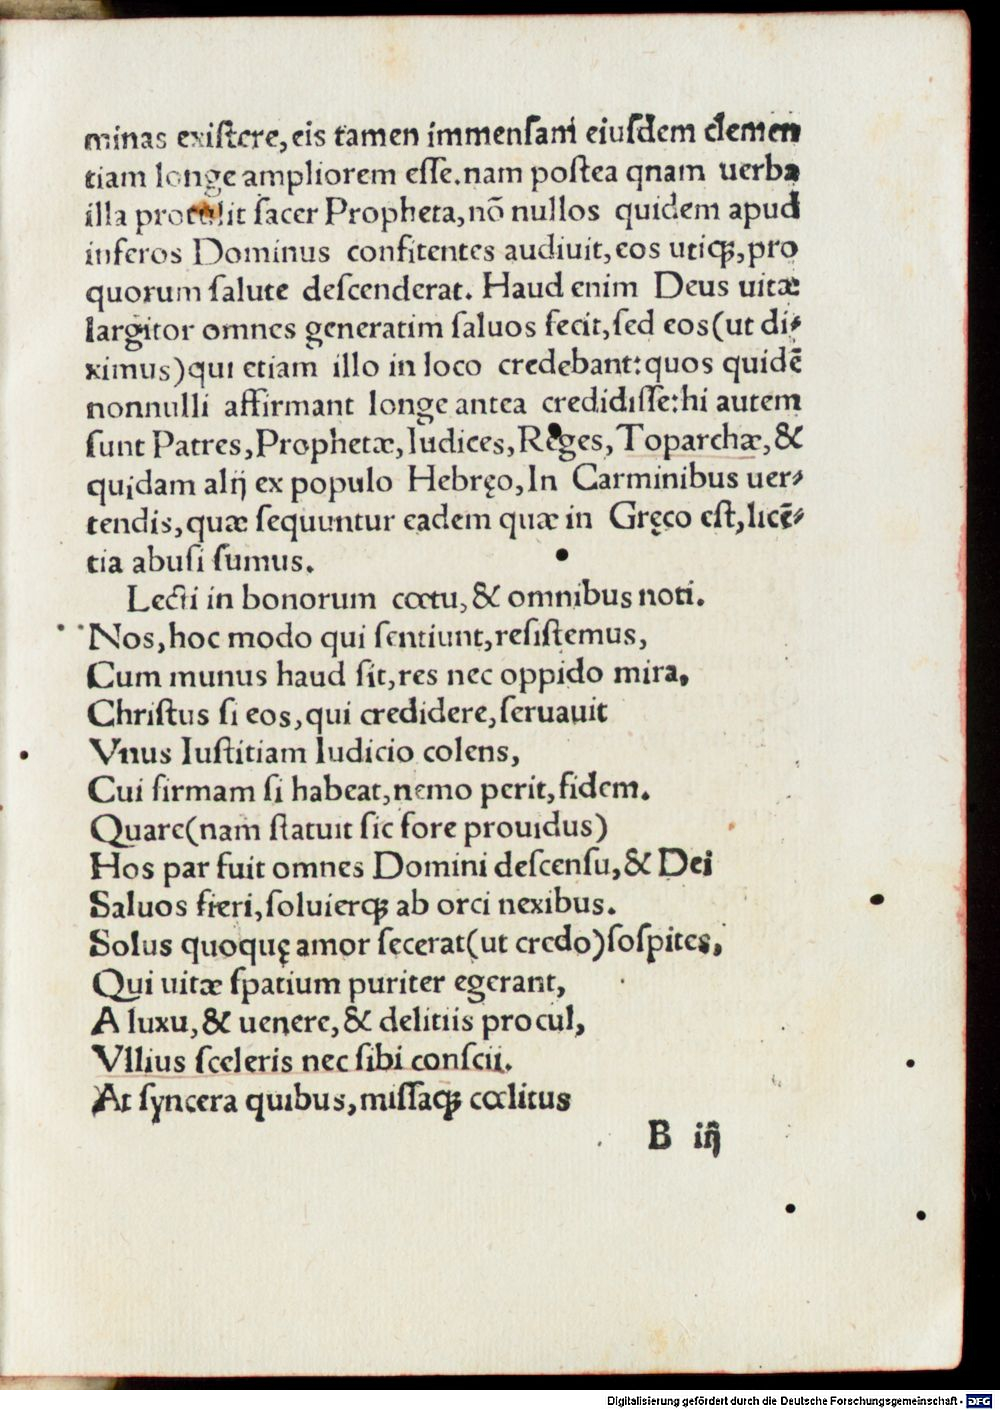 minas exiſtere, eis tamen immenſam eiuſdem clemen
tiam longe ampliorem eſſe. nam poſtea qnam uerba
illa protulit ſacer Propheta, nō nullos quidem apud
inferos Dominus confitentes audiuit, eos utiqꝫ, pro
quorum ſalute deſcenderat. Haud enim Deus uitæ
largitor omnes generatim ſaluos fecit, ſed eos (ut di⸗
ximus) qui etiam illo in loco credebant: quos quidē
nonnulli affirmant longe antea credidiſſe: hi autem
ſunt Patres, Prophetæ, Iudices, Reges, Toparchæ, &
quidam alij ex populo Hebręo, In Carminibus uer⸗
tendis, quæ ſequuntur eadem quæ in Gręco eſt, licē⸗
tia abuſi ſumus.
Lecti in bonorum cœtu, & omnibus noti.
Nos, hoc modo qui ſentiunt, reſiſtemus,
Cum munus haud ſit, res nec oppido mira,
Chriſtus ſi eos, qui credidere, ſeruauit
Vnus Iuſtitiam Iudicio colens,
Cui firmam ſi habeat, nemo perit, fidem.
Quare (nam ſtatuit ſic fore prouidus)
Hos par fuit omnes Domini deſcenſu, & Dei
Saluos fieri, ſoluierqꝫ ab orci nexibus.
Solus quoquę amor fecerat (ut credo) ſoſpites,
Qui uitæ ſpatium puriter egerant,
A luxu, & uenere, & delitiis procul,
Vllius ſceleris nec ſibi conſcii.
At ſyncera quibus, miſſaqꝫ cœlitus
B iij
Digitalisierung gefördert durch die Deutsche Forschungsgemeinschaft - DFG